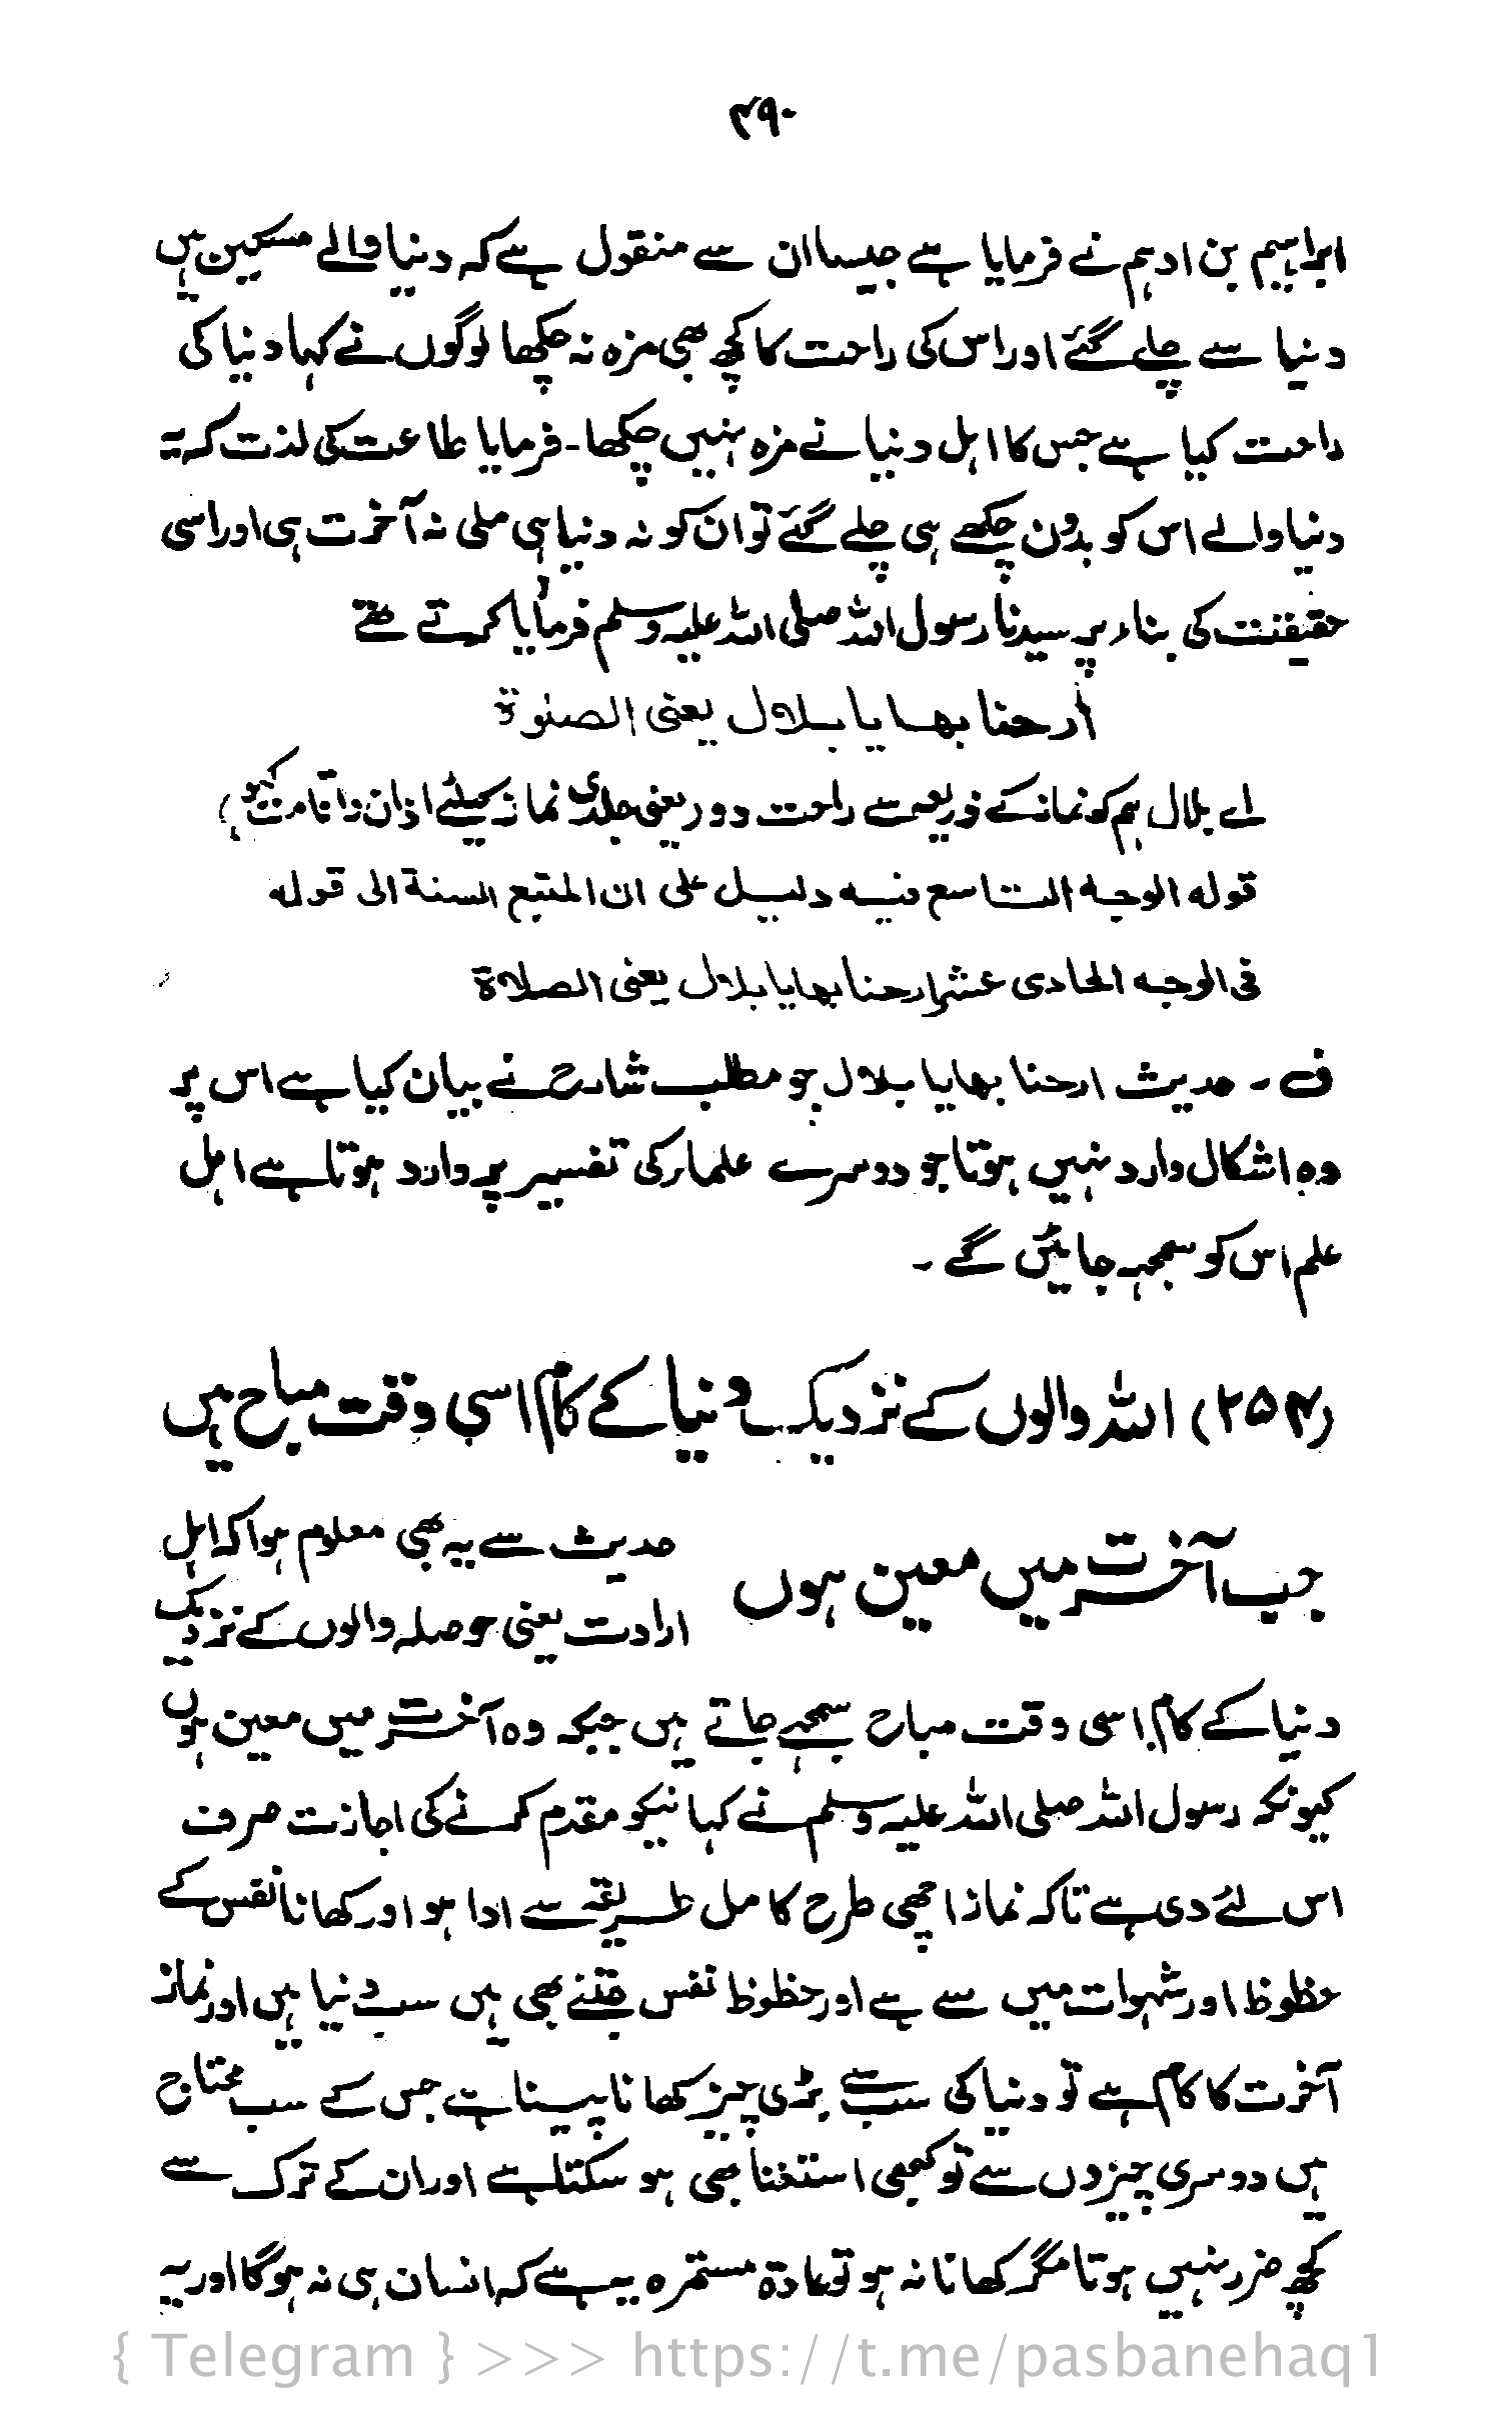 ۴۹۰
ابراہیم بن ادہم نے فرمایا ہے جیسا ان سے منقول ہے کہ دنیا والے مسکین ہیں
دنیا سے چلے گئے اور اس کی راحت کا کچھ بھی مزہ نہ چکھا لوگوں نے کہا دنیا کی
راحت کیا ہے جس کا اہل دنیا نے مزہ نہیں چکھا - فرمایا طاعت کی لذت کہ یہ
دنیا والے اس کو بدون چکھے ہی چلے گئے تو ان کو نہ دنیا ہی ملی نہ آخرت ہی اور اسی
حقیقت کی بناء پر سیدنا رسول اللہ صلی اللہ علیہ وسلم فرمایا کرتے تھے
أرحنا بھا یا بلال یعنی الصلوة
اے بلال ہم کو نماز کے ذریعہ سے راحت دو (یعنی جلدی نماز کیلئے اذان و اقامت کہو)
قوله الوجه التاسع فیه دلیل علی ان المتبع السنة الی قوله
فی الوجه الحادی عشر ارحنا بھا یا بلال یعنی الصلاة
ف - حدیث ارحنا بھا یا بلال جو مطلب شارح نے بیان کیا ہے اس پر
وہ اشکال وارد نہیں ہوتا جو دوسرے علماء کی تفسیر پر وارد ہوتا ہے اہل
علم اس کو سمجھ جائیں گے -
(۲۵۴) اللہ والوں کے نزدیک دنیا کے کام اسی وقت مباح ہیں
جب آخرت میں معین ہوں
حدیث سے یہ بھی معلوم ہوا کہ اہل
ارادت یعنی حوصلہ والوں کے نزدیک
دنیا کے کام اسی وقت مباح سمجھے جاتے ہیں جبکہ وہ آخرت میں معین ہوں
کیونکہ رسول اللہ صلی اللہ علیہ وسلم نے کھانیکو مقدم کرنے کی اجازت صرف
اس لئے دی ہے تاکہ نماز اچھی طرح کامل طریقہ سے ادا ہو اور کھانا نفس کے
حظوظ اور شہوات میں سے ہے اور حظوظ نفس جتنے بھی ہیں سب دنیا ہیں اور نماز
آخرت کا کام ہے تو دنیا کی سب سے بڑی چیز کھانا پینا ہے جس کے سب محتاج
ہیں دوسری چیزوں سے تو کبھی استغنا بھی ہو سکتا ہے اور ان کے ترک سے
کچھ ضرر نہیں ہوتا مگر کھانا نہ ہو تو عادة مستمرہ یہ ہے کہ انسان ہی نہ ہوگا اور یہ
{ Telegram } >>> https://t.me/pasbanehaq1